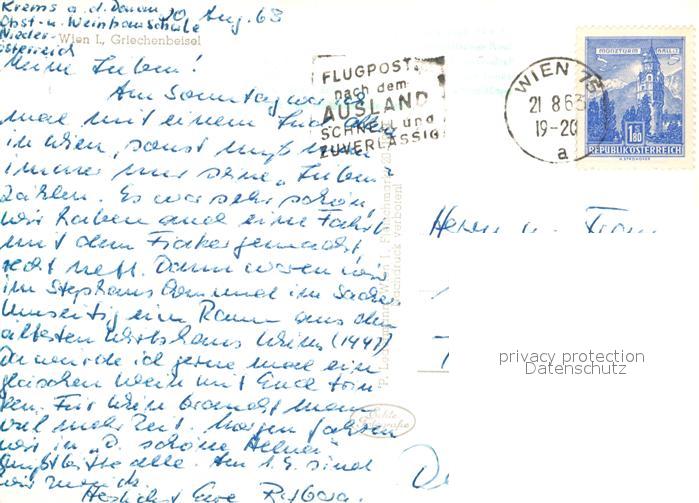 Krems a. d. Donau 20. Aug. 63
Obst- u. Weinbauschule
Nieder-
österreich
Wien I., Griechenbeisel
Meine Lieben!
Am Sonntag war ich
mal mit einem
in Wien, sonst muß man
immer nur seine „
zählen. Es war sehr schön,
wir haben auch eine Fahrt
mit dem Fiaker gemacht,
recht nett. Dann waren wir
im Stephansdom und im Sacher
Umseitig ein Raum aus dem
ältesten Wirtshaus Wiens (1447)
Da würde ich gerne mal ein
Gläschen Wein mit Euch trin-
ken. Für Wien braucht man
viel mehr Zeit. Morgen fahren
wir in „D. schöne Helena"
Grüßt bitte alle. Am 1.9. sind
wir zurück.
Herzlichst Eure Barbara.
FLUGPOST
nach dem
AUSLAND
SCHNELL und
ZUVERLÄSSIG
WIEN 75
21 8 63
19-20
a
MÜNZTURM HALL
S 1.80
REPUBLIK ÖSTERREICH
Herrn u. Frau
Wien I., Fleischmarkt
Nachdruck verboten!
Echte
Fotografie
privacy protection
Datenschutz